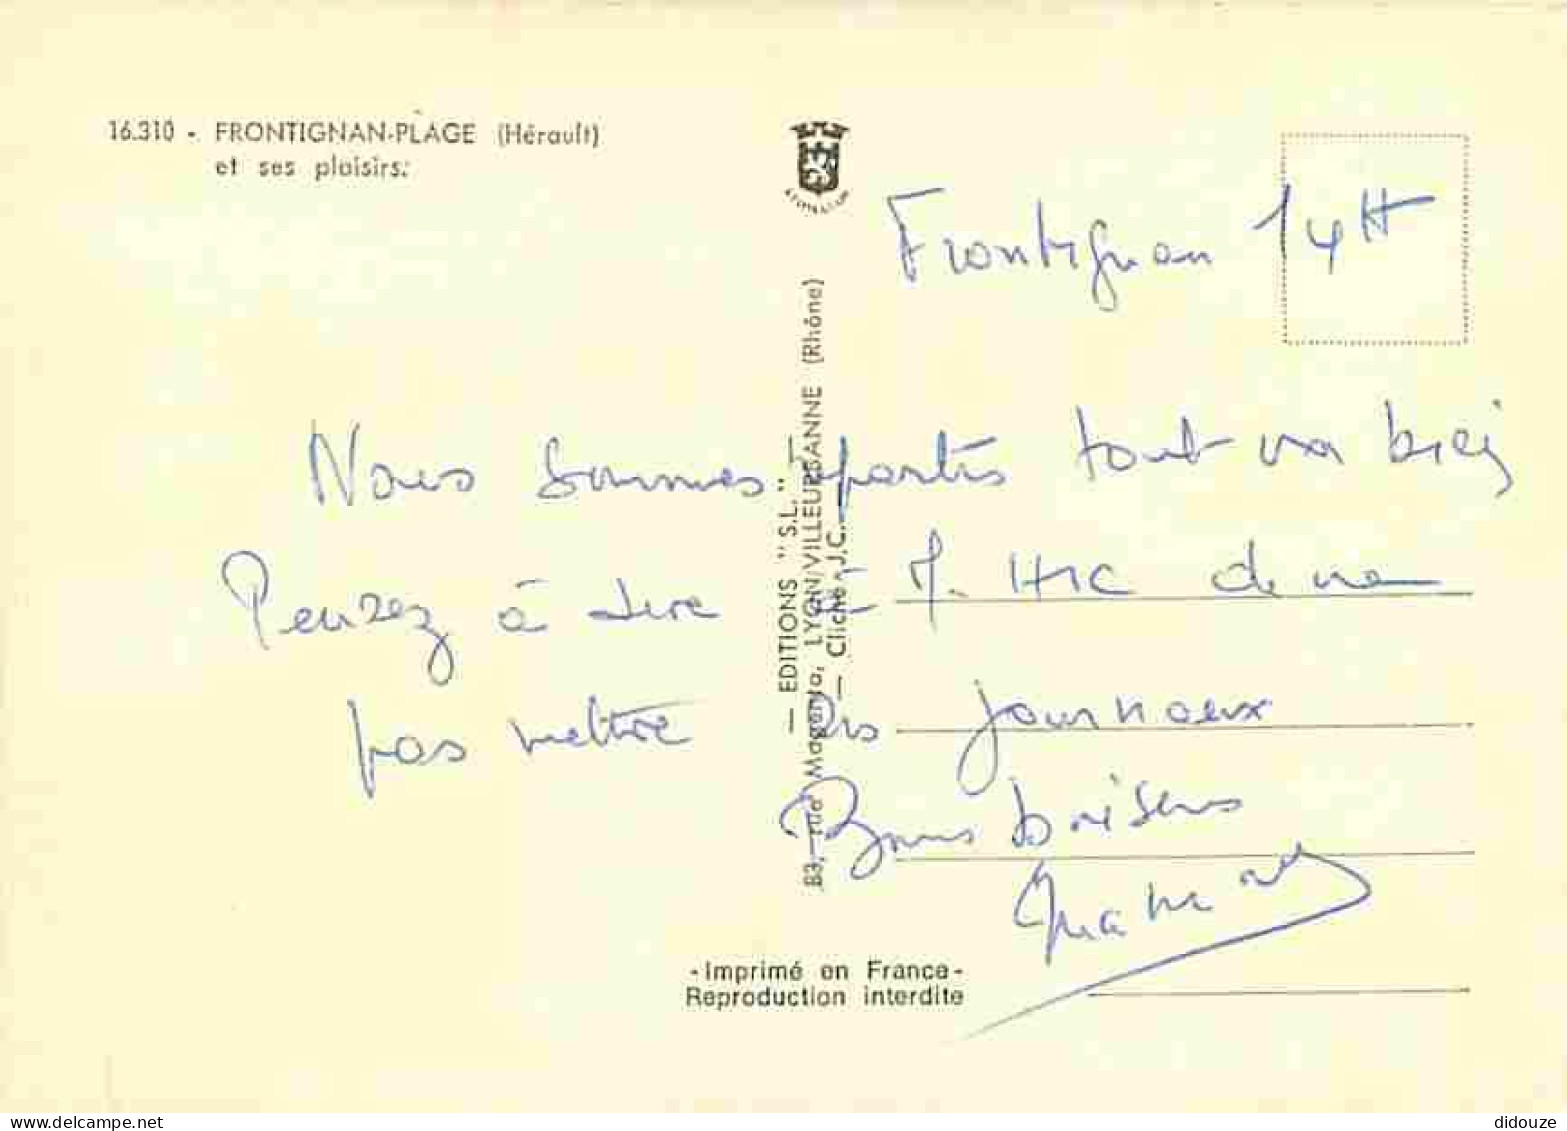 16.310 - FRONTIGNAN-PLAGE (Hérault)
et ses plaisirs.
Frontignan 14H
Nous sommes partis tout va bien
Pensez à dire à M. de ne
pas mettre les journaux
Bons baisers
— EDITIONS "S.L." —
83, rue Magenta, LYON/VILLEURBANNE (Rhône)
— Cliché J.C. —
-Imprimé en France-
Reproduction interdite
delcampe.net
didouze